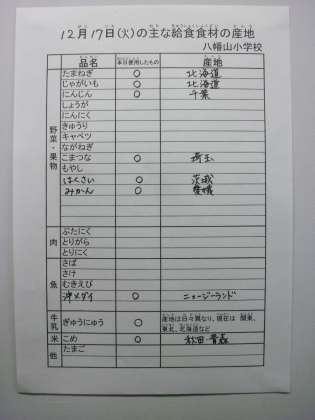 12月17日(火)の主な給食食材の産地
八幡山小学校
品名 本日使用したもの 産地
野菜・果物
たまねぎ ○ 北海道
じゃがいも ○ 北海道
にんじん ○ 千葉
しょうが
にんにく
きゅうり
キャベツ
ながねぎ
こまつな ○ 埼玉
もやし
はくさい ○ 茨城
みかん ○ 愛媛
肉
ぶたにく
とりがら
とりにく
魚
さば
さけ
むきえび
沖メダイ ○ ニュージーランド
牛乳 ぎゅうにゅう ○ 産地は日々異なり、現在は 関東、
東北、北海道など
米 こめ ○ 秋田・青森
他 たまご